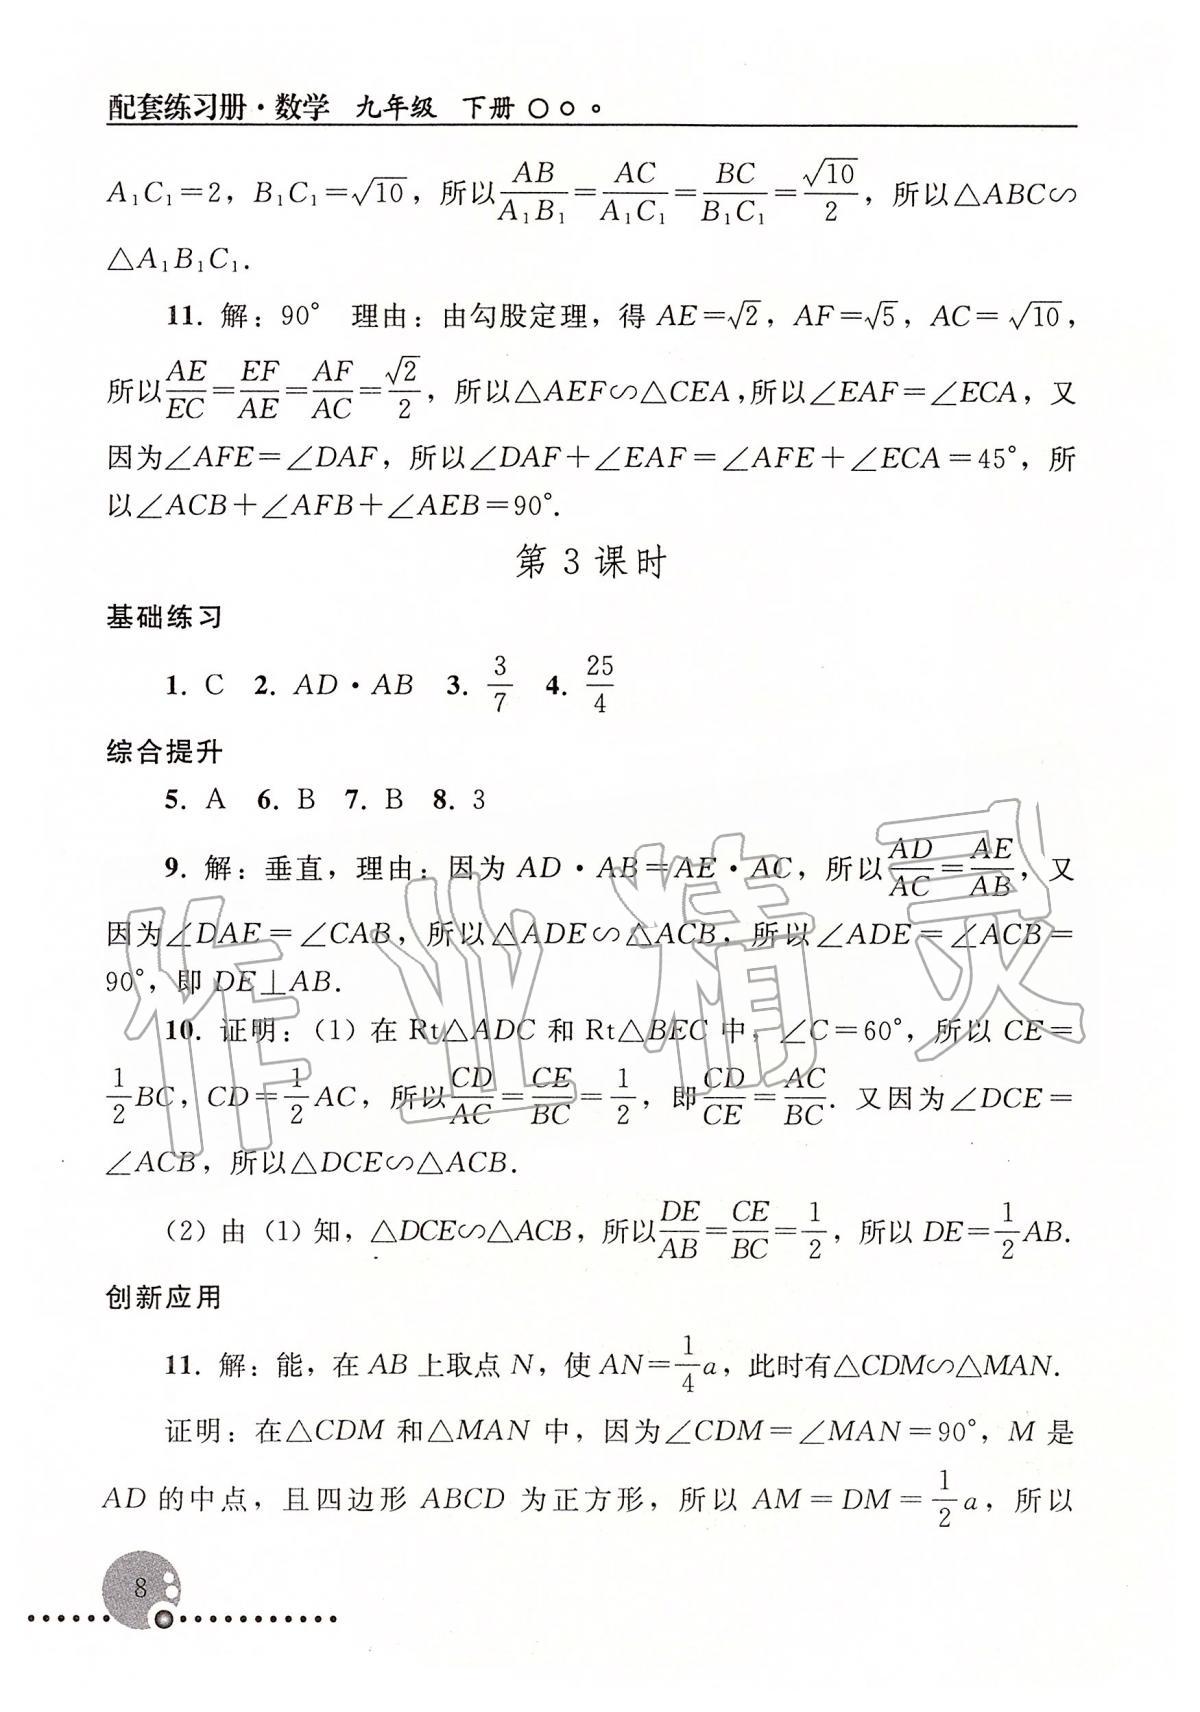 配套练习册·数学 九年级 下册
A₁C₁=2，B₁C₁=√10，所以AB/A₁B₁=AC/A₁C₁=BC/B₁C₁=√10/2，所以△ABC∽
△A₁B₁C₁.
11. 解：90° 理由：由勾股定理，得 AE=√2，AF=√5，AC=√10，
所以AE/EC=EF/AE=AF/AC=√2/2，所以△AEF∽△CEA，所以∠EAF=∠ECA，又
因为∠AFE=∠DAF，所以∠DAF+∠EAF=∠AFE+∠ECA=45°，所
以∠ACB+∠AFB+∠AEB=90°.
第 3 课时
基础练习
1. C 2. AD·AB 3. 3/7 4. 25/4
综合提升
5. A 6. B 7. B 8. 3
9. 解：垂直，理由：因为 AD·AB=AE·AC，所以AD/AC=AE/AB，又
因为∠DAE=∠CAB，所以△ADE∽△ACB，所以∠ADE=∠ACB=
90°，即 DE⊥AB.
10. 证明：（1）在 Rt△ADC 和 Rt△BEC 中，∠C=60°，所以 CE=
1/2BC，CD=1/2AC，所以CD/AC=CE/BC=1/2，即CD/CE=AC/BC. 又因为∠DCE=
∠ACB，所以△DCE∽△ACB.
（2）由（1）知，△DCE∽△ACB，所以DE/AB=CE/BC=1/2，所以 DE=1/2AB.
创新应用
11. 解：能，在 AB 上取点 N，使 AN=1/4a，此时有△CDM∽△MAN.
证明：在△CDM 和△MAN 中，因为∠CDM=∠MAN=90°，M 是
AD 的中点，且四边形 ABCD 为正方形，所以 AM=DM=1/2a，所以
8
作业精灵